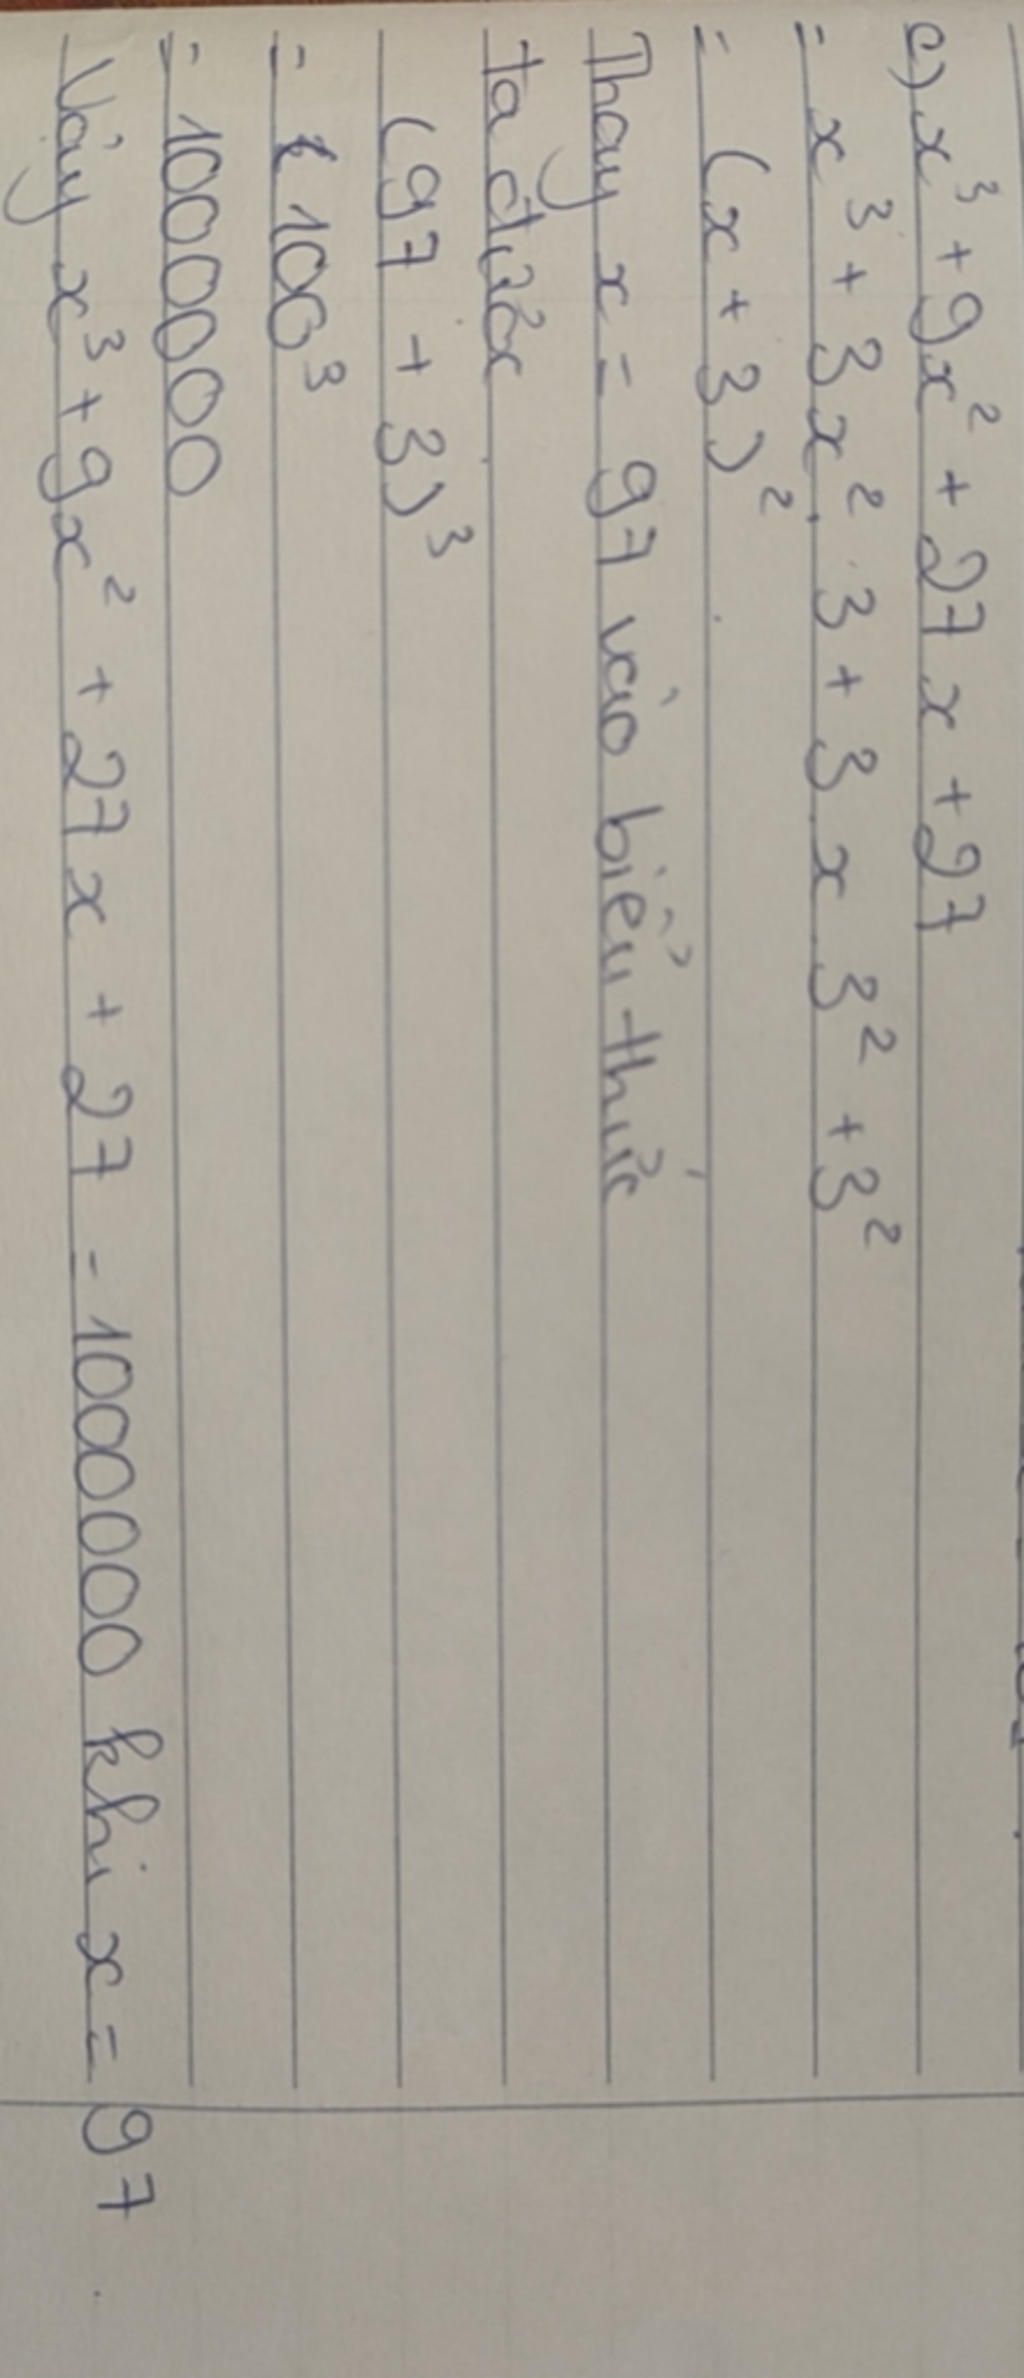 c) x³ + 9x² + 27x + 27
= x³ + 3x².3 + 3.x.3² + 3²
= (x + 3)²
Thay x = 97 vào biểu thức
ta được
(97 + 3)³
= 100³
= 1000000
Vậy x³ + 9x² + 27x + 27 = 1000000 khi x = 97.